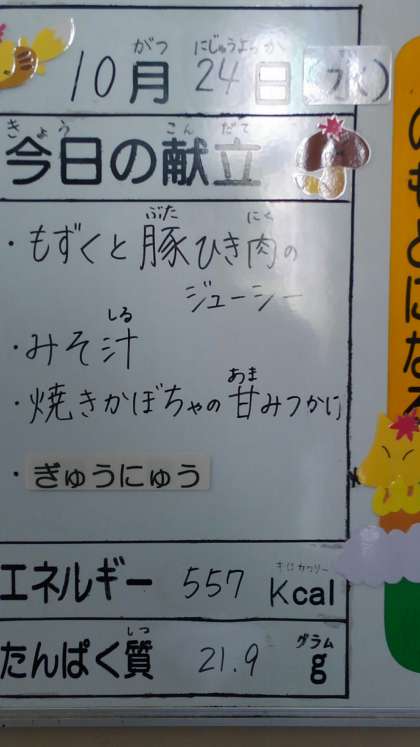 10月24日(水)
がつ にじゅうよっか
今日の献立
きょう こんだて
・もずくと豚ひき肉の
ぶた にく
ジューシー
・みそ汁
しる
・焼きかぼちゃの甘みつかけ
あま
・ぎゅうにゅう
エネルギー 557 Kcal
キロカロリー
たんぱく質 21.9 g
しつ グラム
のもとになる